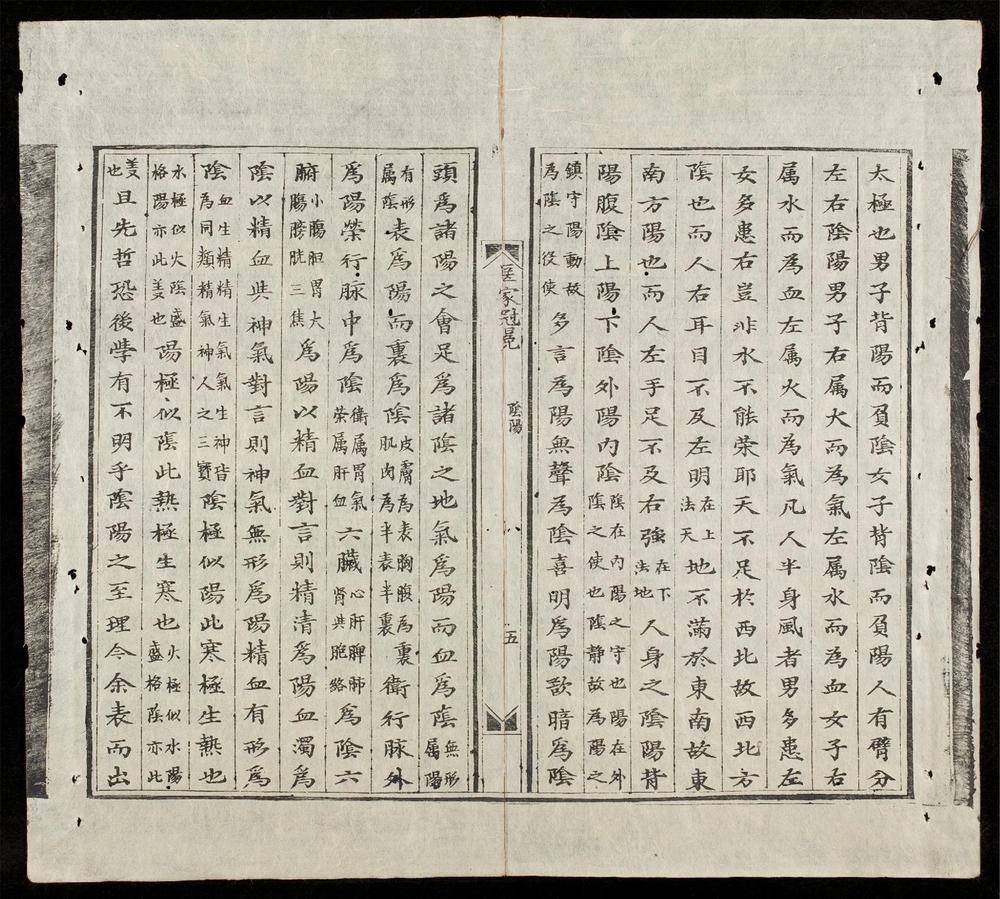 太極也男子背陽而負陰女子背陰而負陽人有臂分
左右陰陽男子右属火而為氣左属水而為血女子右
属水而為血左属火而為氣凡人半身風者男多患左
女多患右豈非水不能荣耶天不足於西北故西北方
陰也而人右耳目不及左明在上法天地不滿於東南故東
南方陽也而人左手足不及右強在下法地人身之陰陽背
陽腹陰上陽下陰外陽内陰陰在内陽之守也陽在外陰之使也陰静故為陽之
鎮守陽動故為陰之役使多言為陽無聲為陰喜明為陽歆暗為陰
医家冠冕
陰陽
五
頭爲諸陽之會足爲諸陰之地氣爲陽而血爲陰無形属陽
有形属陰表爲陽而裏爲陰皮膚為表胸腹為裏肌肉為半表半裏衛行脉外
爲陽榮行脉中爲陰衛属胃氣荣属肝血六臟心肝脾肺腎共胞絡爲陰六
腑小腸胆胃大腸膀胱三焦爲陽以精血對言則精清爲陽血濁爲
陰以精血與神氣對言則神氣無形爲陽精血有形爲
陰血生精精生氣氣生神皆為同類精氣神人之三寳陰極似陽此寒極生熱也
水極似火陰盛格陽亦此羙也陽極似陰此熱極生寒也火極似水陽盛格陰亦此
羙也且先哲恐後學有不明乎陰陽之至理今余表而出